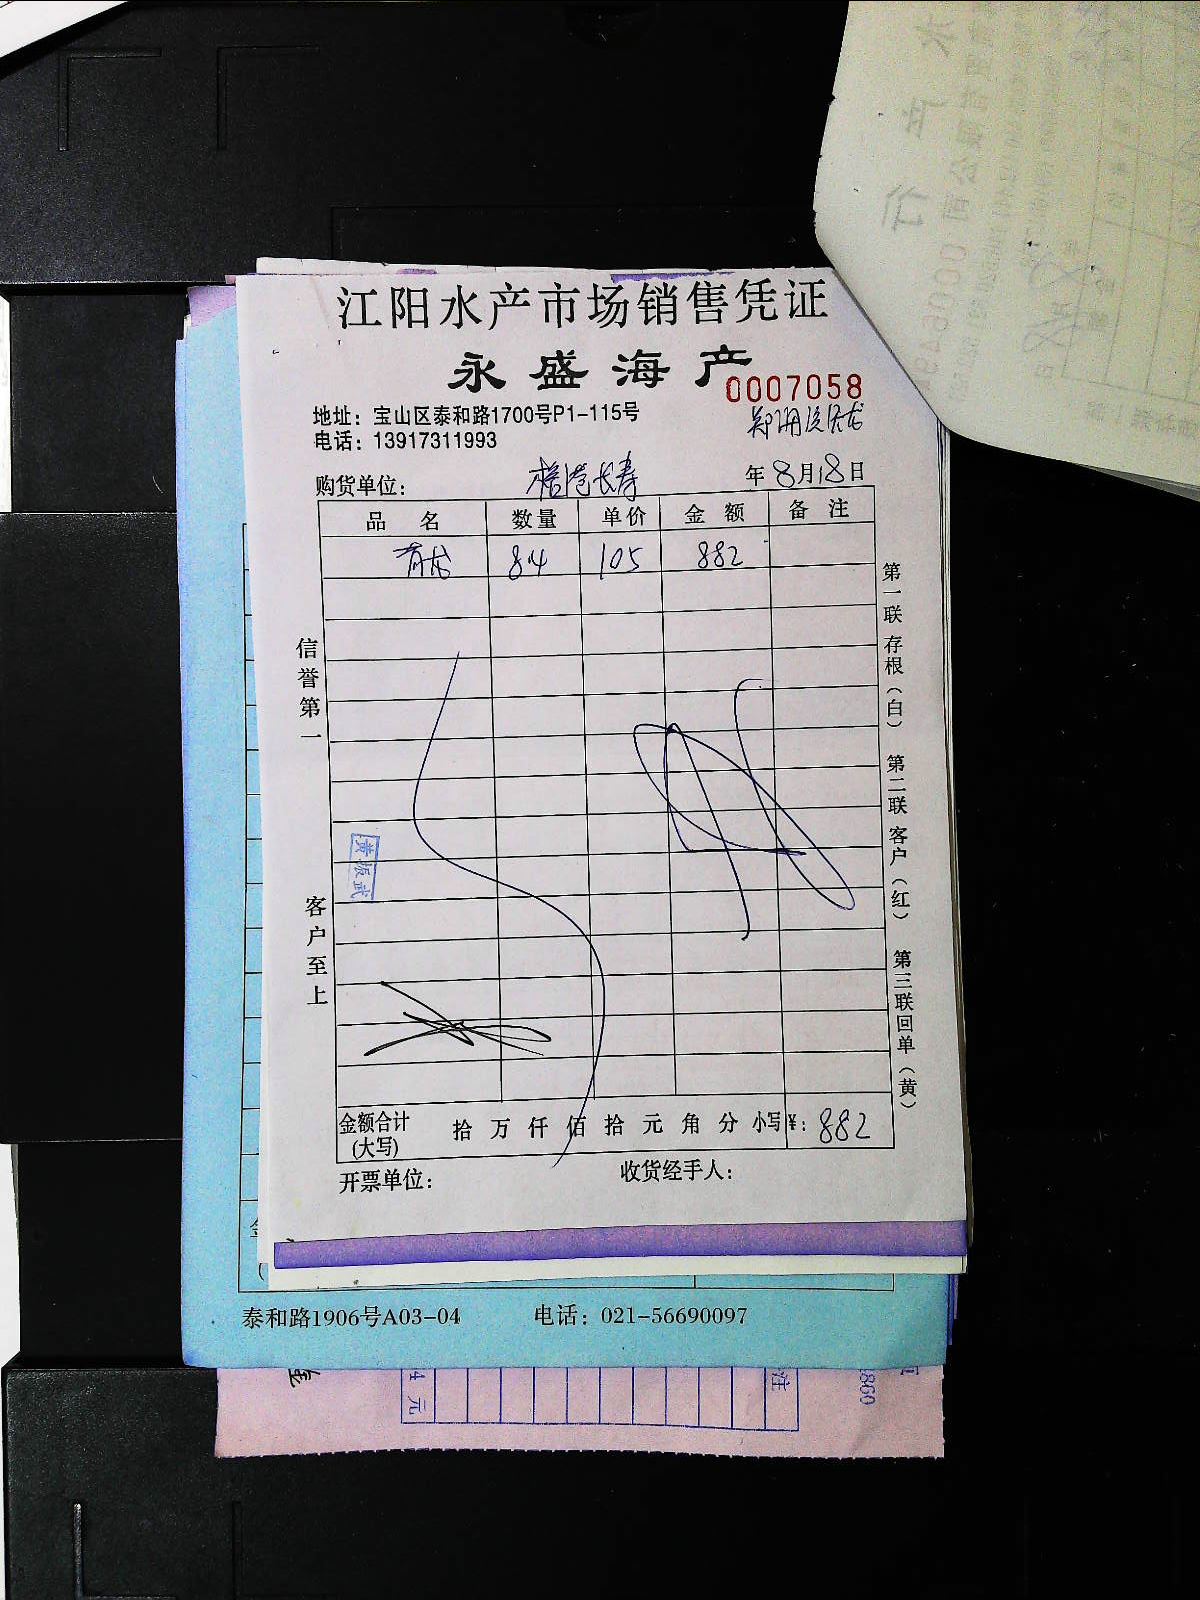 江阳水产市场销售凭证
永盛海产
0007058
地址：宝山区泰和路1700号P1-115号
电话：13917311993
购货单位： 长寿 年8月18日
品名 数量 单价 金额 备注
青龙 8.4 105 882
信誉第一
客户至上
第一联 存根（白）
第二联 客户（红）
第三联 回单（黄）
黄振武
金额合计(大写) 拾 万 仟 佰 拾 元 角 分 小写¥：882
开票单位： 收货经手人：
泰和路1906号A03-04 电话：021-56690097
4 元
注
860